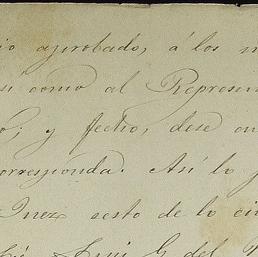 io aprobado, á los
sí como al Represen
o; y fecho, dese
orresponda. Así lo
Juez sesto de lo ci
Luis G. del